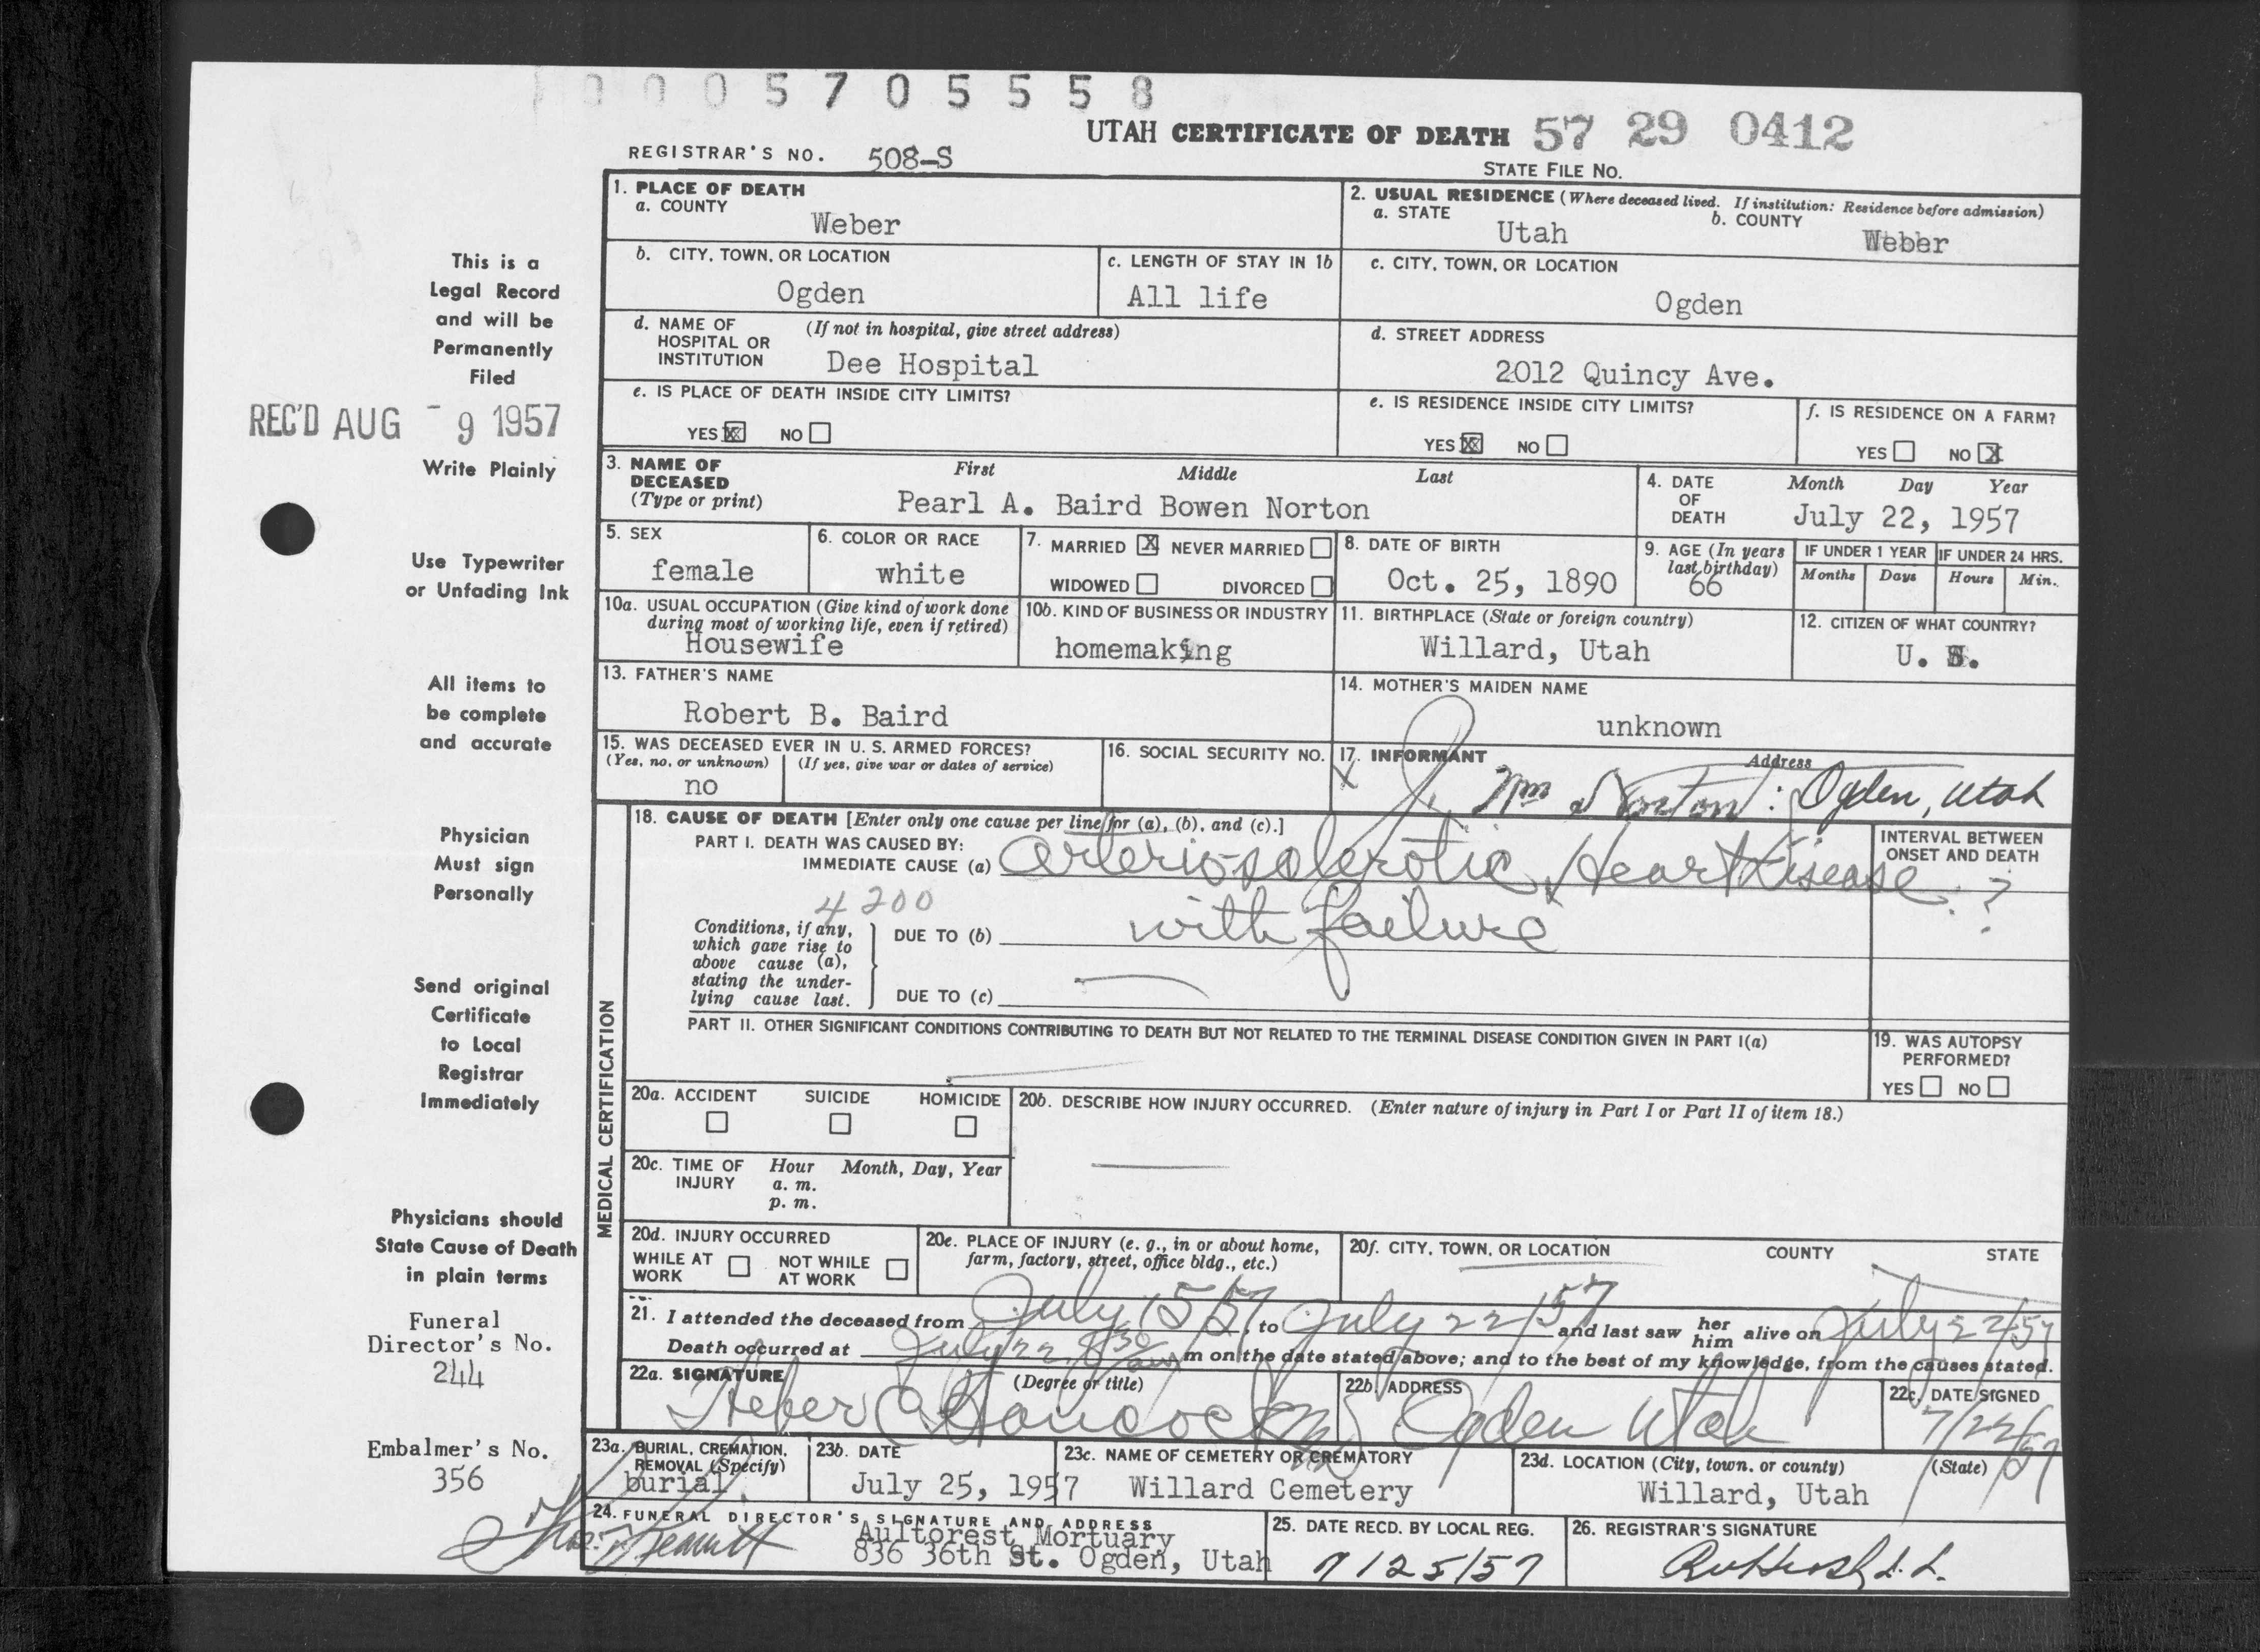 0005705558
UTAH CERTIFICATE OF DEATH 57 29 0412
REGISTRAR'S NO. 508-S
STATE FILE NO.
This is a
Legal Record
and will be
Permanently
Filed
REC'D AUG - 9 1957
Write Plainly
Use Typewriter
or Unfading Ink
All items to
be complete
and accurate
Physician
Must sign
Personally
Send original
Certificate
to Local
Registrar
Immediately
Physicians should
State Cause of Death
in plain terms
Funeral
Director's No.
244
Embalmer's No.
356
1. PLACE OF DEATH
a. COUNTY
Weber
2. USUAL RESIDENCE (Where deceased lived. If institution: Residence before admission)
a. STATE
Utah
b. COUNTY
Weber
b. CITY, TOWN, OR LOCATION
Ogden
c. LENGTH OF STAY IN 1b
All life
c. CITY, TOWN, OR LOCATION
Ogden
d. NAME OF (If not in hospital, give street address)
HOSPITAL OR
INSTITUTION Dee Hospital
d. STREET ADDRESS
2012 Quincy Ave.
e. IS PLACE OF DEATH INSIDE CITY LIMITS?
YES X NO
e. IS RESIDENCE INSIDE CITY LIMITS?
YES X NO
f. IS RESIDENCE ON A FARM?
YES NO X
3. NAME OF First Middle Last
DECEASED
(Type or print) Pearl A. Baird Bowen Norton
4. DATE Month Day Year
OF
DEATH July 22, 1957
5. SEX
female
6. COLOR OR RACE
white
7. MARRIED X NEVER MARRIED
WIDOWED DIVORCED
8. DATE OF BIRTH
Oct. 25, 1890
9. AGE (In years
last birthday)
66
IF UNDER 1 YEAR IF UNDER 24 HRS.
Months Days Hours Min.
10a. USUAL OCCUPATION (Give kind of work done
during most of working life, even if retired)
Housewife
10b. KIND OF BUSINESS OR INDUSTRY
homemaking
11. BIRTHPLACE (State or foreign country)
Willard, Utah
12. CITIZEN OF WHAT COUNTRY?
U. S.
13. FATHER'S NAME
Robert B. Baird
14. MOTHER'S MAIDEN NAME
unknown
15. WAS DECEASED EVER IN U. S. ARMED FORCES?
(Yes, no, or unknown) (If yes, give war or dates of service)
no
16. SOCIAL SECURITY NO.
17. INFORMANT Address
X Wm Norton: Ogden, Utah
MEDICAL CERTIFICATION
18. CAUSE OF DEATH [Enter only one cause per line for (a), (b), and (c).]
PART I. DEATH WAS CAUSED BY:
IMMEDIATE CAUSE (a) Arterio-sclerotic Heart Disease
INTERVAL BETWEEN
ONSET AND DEATH
?
4200
Conditions, if any,
which gave rise to
above cause (a),
stating the under-
lying cause last.
DUE TO (b) with failure
DUE TO (c)
PART II. OTHER SIGNIFICANT CONDITIONS CONTRIBUTING TO DEATH BUT NOT RELATED TO THE TERMINAL DISEASE CONDITION GIVEN IN PART I(a)
19. WAS AUTOPSY
PERFORMED?
YES NO
20a. ACCIDENT SUICIDE HOMICIDE
20b. DESCRIBE HOW INJURY OCCURRED. (Enter nature of injury in Part I or Part II of item 18.)
20c. TIME OF Hour Month, Day, Year
INJURY a. m.
p. m.
20d. INJURY OCCURRED
WHILE AT NOT WHILE
WORK AT WORK
20e. PLACE OF INJURY (e. g., in or about home,
farm, factory, street, office bldg., etc.)
20f. CITY, TOWN, OR LOCATION COUNTY STATE
21. I attended the deceased from July 15/57, to July 22/57 and last saw her him alive on July 22/57
Death occurred at July 22, 8:30 am m on the date stated above; and to the best of my knowledge, from the causes stated.
22a. SIGNATURE (Degree or title)
Heber C Hancock MD
22b. ADDRESS
Ogden Utah
22c. DATE SIGNED
7/22/57
23a. BURIAL, CREMATION,
REMOVAL (Specify)
burial
23b. DATE
July 25, 1957
23c. NAME OF CEMETERY OR CREMATORY
Willard Cemetery
23d. LOCATION (City, town, or county) (State)
Willard, Utah
24. FUNERAL DIRECTOR'S SIGNATURE AND ADDRESS
Aultorest Mortuary
836 36th St. Ogden, Utah
25. DATE RECD. BY LOCAL REG.
7/25/57
26. REGISTRAR'S SIGNATURE